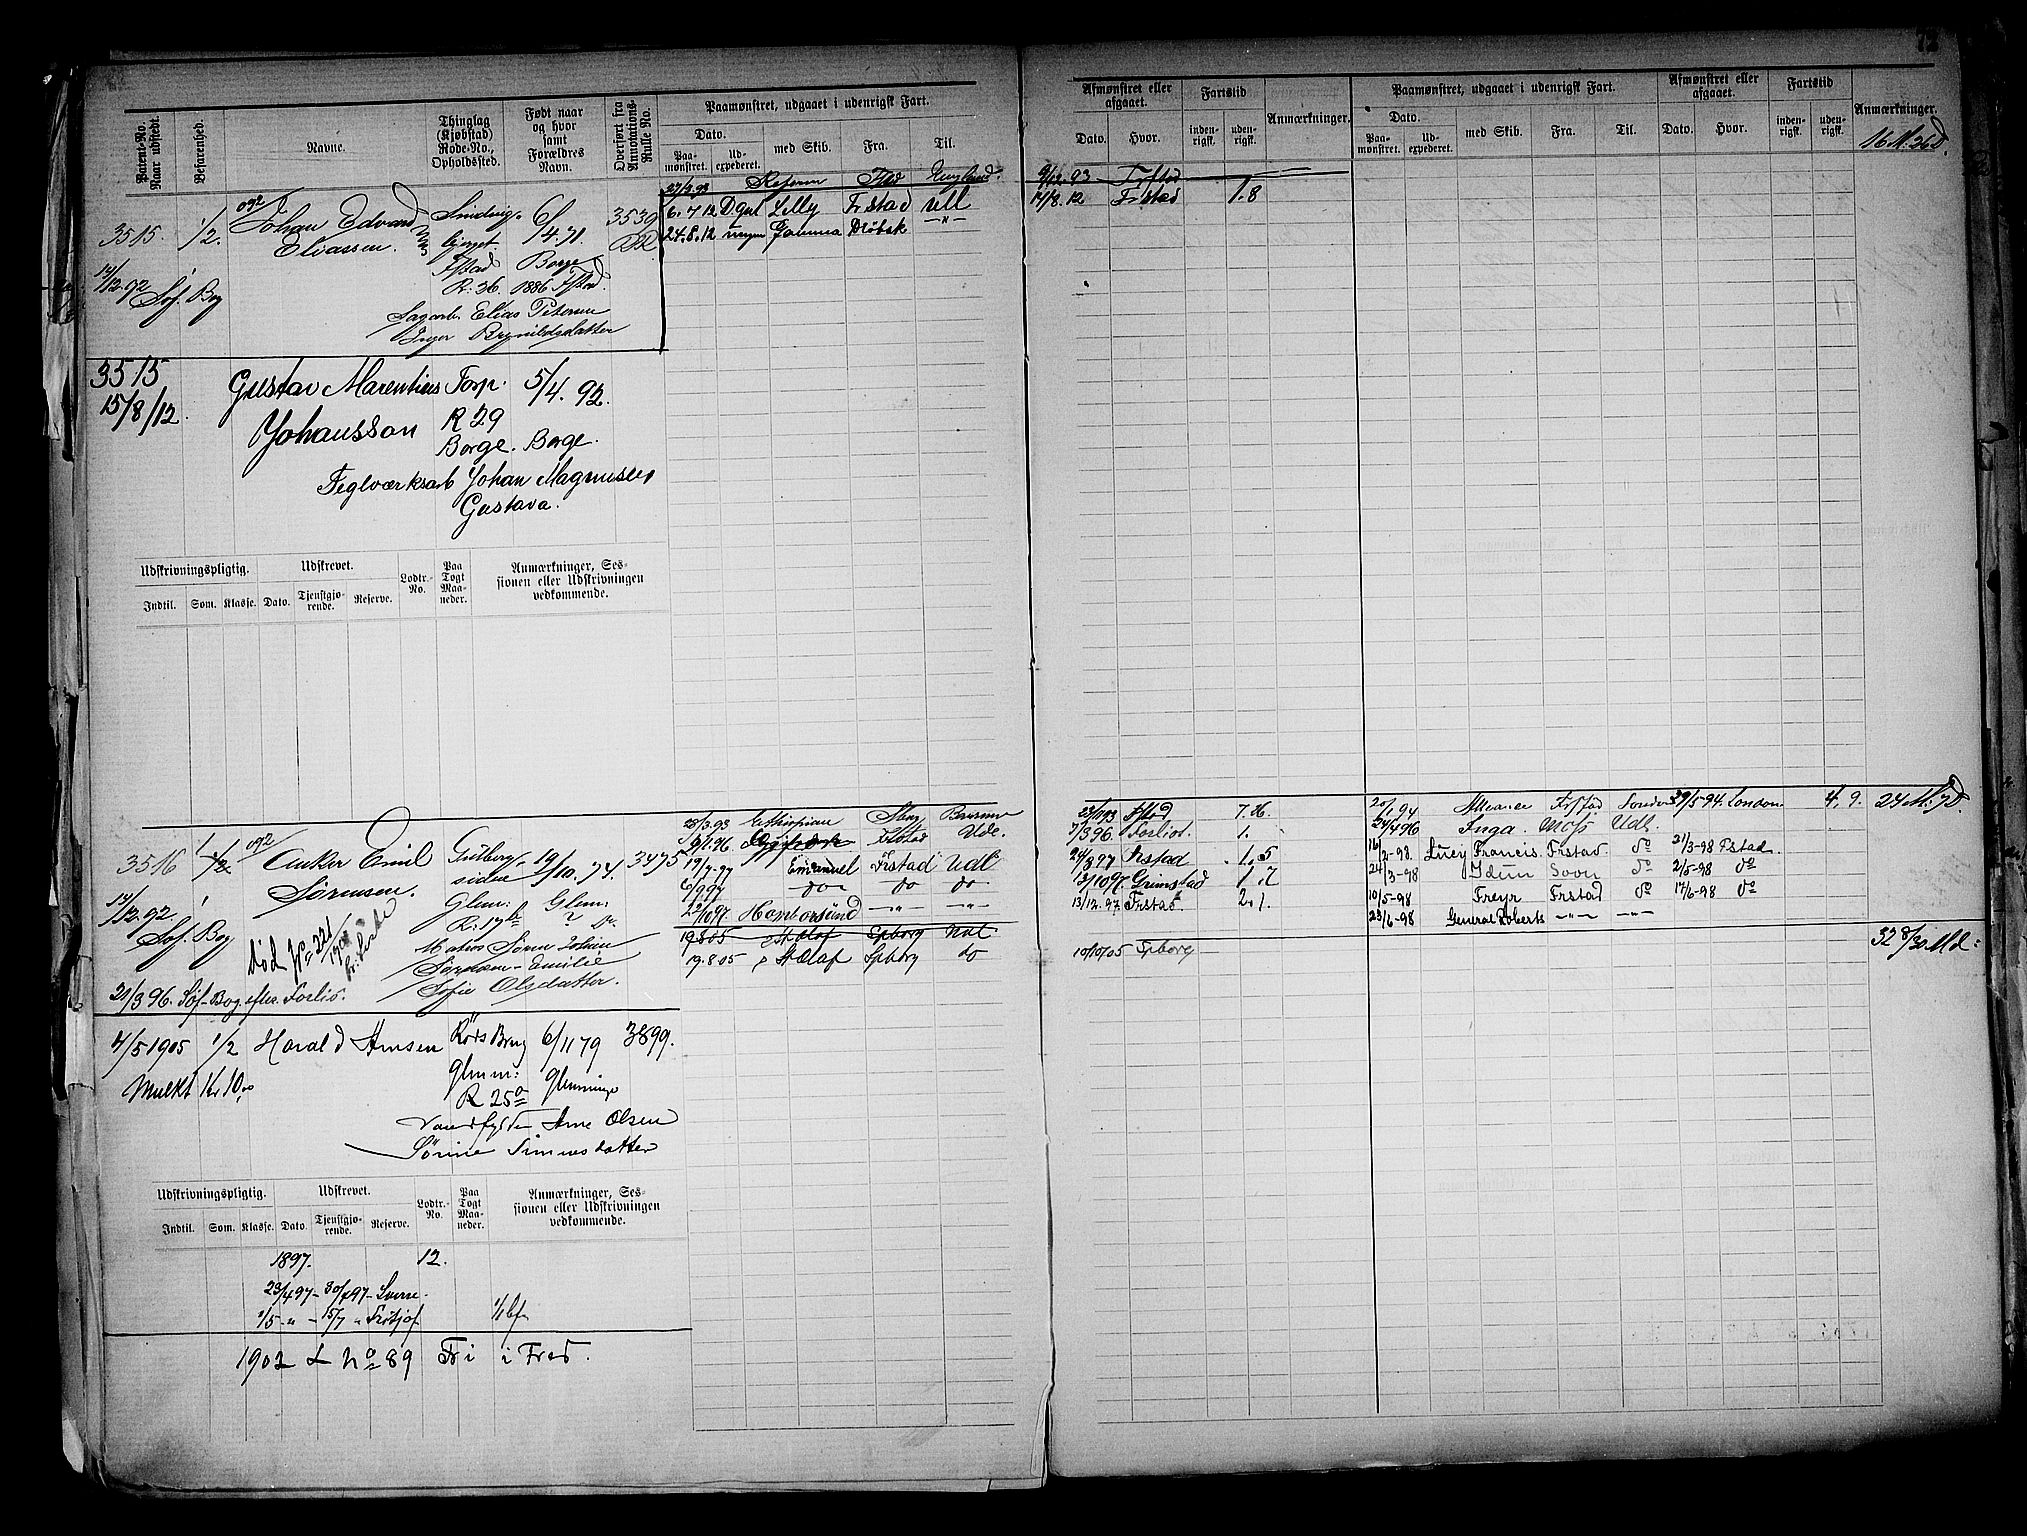 72
Patent-No. Naar udstedt.
Befarenhed.
Navne.
Thinglag (Kjøbstad) Rode-No., Opholdssted.
Født naar og hvor samt Forældres Navn.
Overført fra Annotations-Rulle No.
Paamønstret, udgaaet i udenrigsk Fart.
Dato.
Paamønstret.
Udexpederet.
med Skib.
Fra.
Til.
Afmønstret eller afgaaet.
Dato.
Hvor.
Fartstid
indenrigsk.
udenrigsk.
Anmærkninger.
Paamønstret, udgaaet i udenrigsk Fart.
Dato.
Paamønstret.
Udexpederet.
med Skib.
Fra.
Til.
Afmønstret eller afgaaet.
Dato.
Hvor.
Fartstid
indenrigsk.
udenrigsk.
Anmærkninger.
16 M. 26 D.
27/3 93 Reform Fstad England
9/12 93 Frstad
3515. 1/2. Johan Edvard 6/4.71. 3539
6.7.12 Lilly Frstad Udl
17/8.12 Frstad 1.8
Eliassen.
24.8.12 Gamma Drøbak -"-
Fstad Borge
R: 26. 1886 Fstad.
14/12-92 Søf. Bog
Sagarb. Elias Petersen
Inger Brynildsdatter
3515 Gustav Marentius Torp. 5/4. 92.
15/8/12. Johansson R 29
Borge. Borge.
Teglværksarb Johan Magnussen
Gustava.
Udskrivningspligtig.
Udskrevet.
Lodtr.-No.
Paa Togt Maaneder.
Anmærkninger, Sessionen eller Udskrivningen vedkommende.
Indtil.
Som.
Klasse.
Dato.
Tjenstgjørende.
Reserve.
28/3.93 Ethiopian
23/11 93 Fstad 7.26.
20/1 94 Alliance Frstad London 29/5-94. London 4. 9. 24 M. 7 D.
7/3 96. Forlist. 1.
24/4 96 Inga. Moss Udl.
3516 1/2 Anker Emil 19/10.74. 3475
19/7-97 Emanuel Frstad Udl
24/8 97 Frstad 1.5
16/2-98. Lucy Francis. Frstad. do 21/3-98 Fstad.
Sørensen. Glem: Glem:
6/9 97 -do- do do
13/10 97. Grimstad 1.7
24/3-98 Idun Soon do 2/5-98 do
14/12.92.
22/10 97 Homborsund -"- -"-
13/12.97 Frstad 2.1.
10/5-98 Freyr Frstad do 17/6-98 do
Søf. Bog
23/6-98 General Roberts -"- -"-
Matros Søren Johan
19.8.05 St Olaf Frborg Nat
Sørensen - Emilie
19.8.05 St Olaf Frborg do
10/10/05 Frborg
32 8/30 Md:
Sofie Olsdatter.
død No 221/19
21/3 96. Søf-Bog efter Forlis.
4/5 1905 1/2 Harald Arnesen Rørs Brug 6/11 79 3899.
Mulkt Kr 10,00
Glem: Glemminge
R 25a
Arne Olsen
Sørine Simensdatter
Udskrivningspligtig.
Udskrevet.
Lodtr.-No.
Paa Togt Maaneder.
Anmærkninger, Sessionen eller Udskrivningen vedkommende.
Indtil.
Som.
Klasse.
Dato.
Tjenstgjørende.
Reserve.
1897. 12.
23/4 97 - 30/4 97 - Sverre.
1/5 - " - 15/7 " Fritjof
1902 No 89 Fri i Fred.